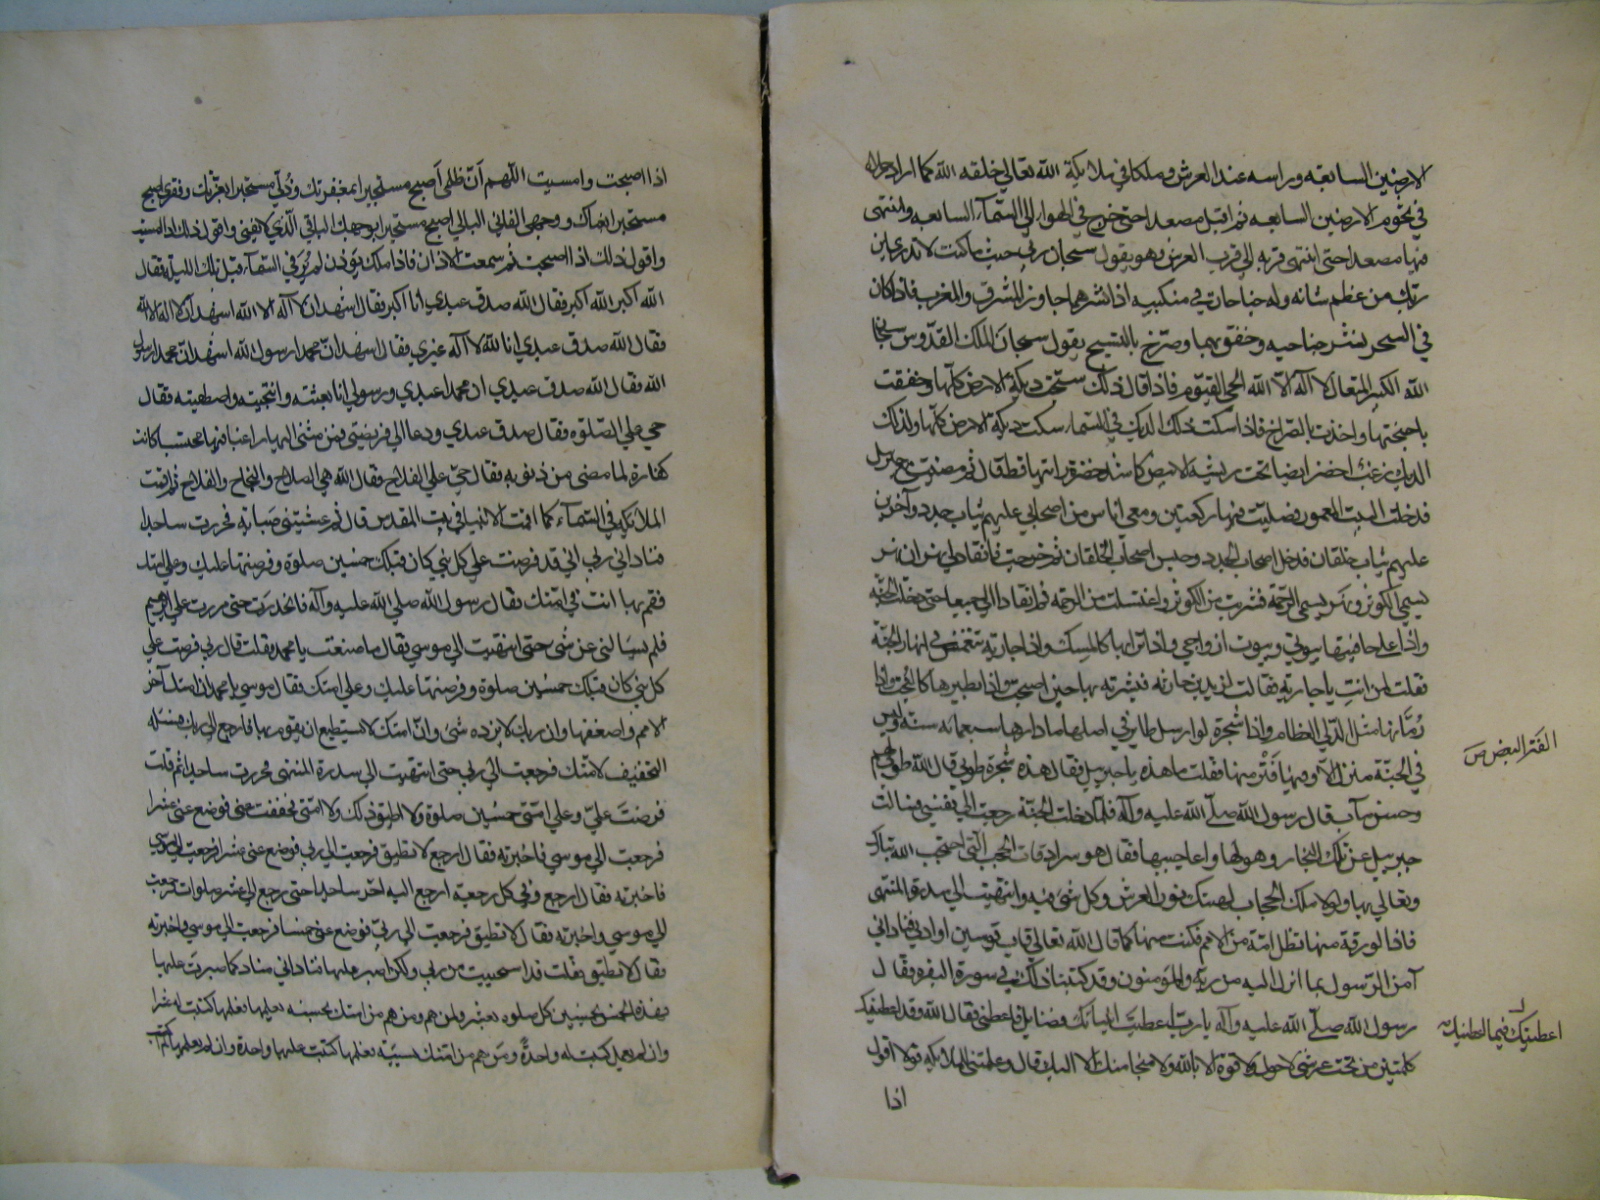 الارضين السابعه وراسه عند العرش وملكا في ملائكة الله تعالي خلقه الله كما اراد رجلاه
في تخوم الارضين السابعه ثم اقبل مصعدا حتى خرج في الهواء الي السمآء السابعه وانتهى
فيها مصعدا حتى انتهى قرنه الي قرب العرش وهو يقول سبحان ربي حيث ما كنت لا تدري اين
ربك من عظم شانه وله جناحان في منكبيه اذا نشرهما جاوز المشرق والمغرب فاذا كان
في السحر نشر جناحيه وخفق بهما وصرخ بالتسبيح يقول سبحان الملك القدوس سبحان
الله الكبير المتعال لا آله الا الله الحي القيوم فاذا قال ذلك سبحت ديكة الارض كلها وخفقت
باجنحتها واخذت بالصراخ فاذا سكت ذلك الديك في السماء سكت ديكة الارض كلها ولذلك
الديك زغب اخضر ايضا تحت ريشه الابيض كاشد خضرة رايتها قط قال ثم مضيت مع جبرئيل
فدخلت البيت المعمور فصليت فيها ركعتين ومعي اناس من اصحابي عليهم ثياب جدد وآخرين
عليهم ثياب خلقان فدخل اصحاب الجدد وحبس اصحاب الخلقان ثم خرجت فانقاد لي نهران نهر
يسمى الكوثر ونهر يسمى الرحمة فشربت من الكوثر واغتسلت من الرحمة ثم انقادا لي جميعا حتى دخلت الجنة
واذا على حافتيها بيوتي وبيوت ازواجي واذا ترابها كالمسك واذا جارية تنغمس في انهار الجنة
فقلت لمن انت يا جارية فقالت لزيد بن حارثه فبشرته بها حين اصبحت واذا بطيرها كالبخت واذا
رمانها مثل الدلي العظام واذا شجرة لو ارسل طاير في اصلها ما دارها سبعمائة سنة وليس
في الجنة منزل الا وفيها فتر منها فقلت ما هذه يا جبرئيل فقال هذه شجرة طوبي قال الله طوبى لهم
وحسن مآب قال رسول الله صلى الله عليه وآله فلما دخلت الجنة رجعت الي نفسي فسالت
جبرئيل عن تلك البحار وهولها واعاجيبها فقال هو سرادقات الحجب التي احتجب الله تبارك
وتعالي بها ولولا تلك الحجاب لهتك نور العرش وكل شي فيه وانتهيت الي سدرة المنتهى
فاذا الورقة منها تظل امة من الامم فكنت منها كما قال الله تعالي قاب قوسين او ادنى فناداني
آمن الرسول بما انزل اليه من ربه والمومنون وقد كتبنا ذلك في سورة البقره فقال
رسول الله صلى الله عليه وآله يا رب اعطيت انبيائك فضايل فاعطني فقال الله وقد اعطيتك
كلمتين من تحت عرشي لا حول ولا قوة الا بالله ولا منجا منك الا اليك قال وعلمتني الملائكه قولا اقول
اذا
الفتر البعض ص
اعطيتك فيما اعطيتك
اذا اصبحت وامسيت اللهم ان ظلمي اصبح مستجيرا بمغفرتك وذلي مستجيرا بعزتك وفقري اصبح
مستجيرا بغناك ووجهي الفاني البالي اصبح مستجيرا بوجهك الباقي الذي لا يفنى واقول ذلك اذا امسيت
واقول ذلك اذا اصبحت ثم سمعت الاذان فاذا ملك يؤذن لم ير في السمآء قبل تلك الليلة فقال
الله اكبر الله اكبر فقال الله صدق عبدي انا اكبر فقال اشهد ان لا آله الا الله اشهد ان لا اله الا الله
فقال الله صدق عبدي انا الله لا آله غيري فقال اشهد ان محمدا رسول الله اشهد ان محمدا رسول
الله فقال الله صدق عبدي ان محمدا عبدي ورسولي انا بعثته وانتجبته واصطفيته فقال
حي علي الصلوه فقال صدق عبدي ودعا الي فريضتي فمن مشى اليها راغبا فيها محتسبا كانت
كفارة لما مضى من ذنوبه فقال حي علي الفلاح فقال الله هي الصلاح والنجاح والفلاح ثم اممت
الملائكه في السمآء كما اممت الانبيا في بيت المقدس قال ثم غشيتني صبابة فخررت ساجدا
فناداني ربي اني قد فرضت علي كل نبي كان قبلك خمسين صلوة وفرضتها عليك وعلي امتك
فقم بها انت في امتك فقال رسول الله صلي الله عليه وآله فانحدرت حتى مررت علي ابرهيم
فلم يسالني عن شي حتى انتهيت الي موسي فقال ما صنعت يا محمد فقلت قال ربي فرضت علي
كل نبي كان قبلك خمسين صلوة وفرضتها عليك وعلي امتك فقال موسي يا محمد ان امتك آخر
الامم واضعفها وان ربك لا يزده شي وان امتك لا تستطيع ان يقوم بها فارجع الي ربك فسئله
التخفيف لامتك فرجعت الي ربي حتى انتهيت الي سدرة المنتهى فخررت ساجدا ثم قلت
فرضت علي وعلي امتي خمسين صلوة ولا اطيق ذلك ولا امتي فخفف عني فوضع عني عشرا
فرجعت الي موسي فاخبرته فقال ارجع لا تطيق فرجعت الي ربي فوضع عني عشرا فرجعت الي موسي
فاخبرته فقال ارجع وفي كل رجعة ارجع اليه اخر ساجدا حتى رجع الي عشر صلوات فرجعت
الي موسي واخبرته فقال لا تطيق فرجعت الي ربي فوضع عني خمسا فرجعت الي موسي فاخبرته
فقال لا تطيق فقلت قد استحييت من ربي ولكن اصبر عليها فناداني مناد كما صبرت عليها
فهذه الخمس بخمسين كل صلوه بعشر ومن هم من امتك بحسنه يعملها فعملها كتبت له عشرا
وان لم يعمل كتبت له واحدة ومن هم من امتك بسيئة فعملها كتبت عليه واحدة وان لم يعملها لم اكتب